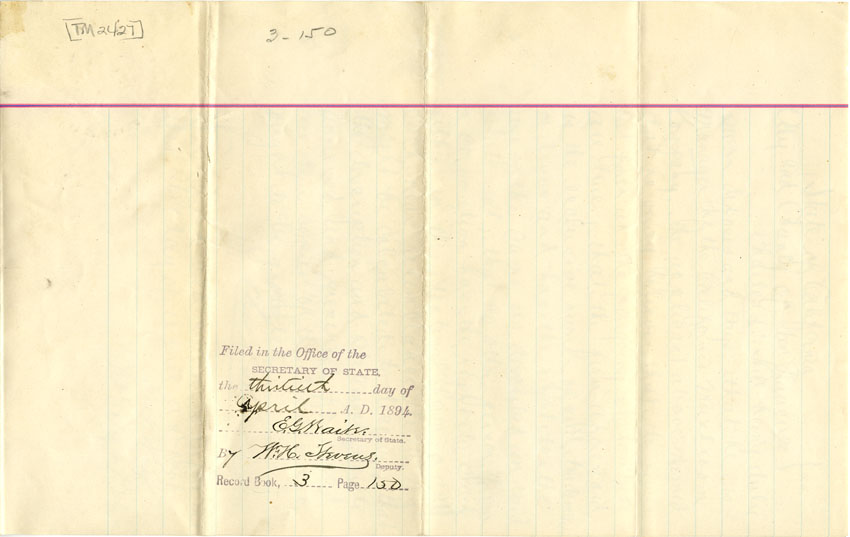 [TM 24/27]
3-150
Filed in the Office of the
SECRETARY OF STATE,
the thirtieth day of
April A. D. 1894.
E.G. Kaiks.
Secretary of State.
By W. H. Stevens.
Deputy.
Record Book, 3 Page 150